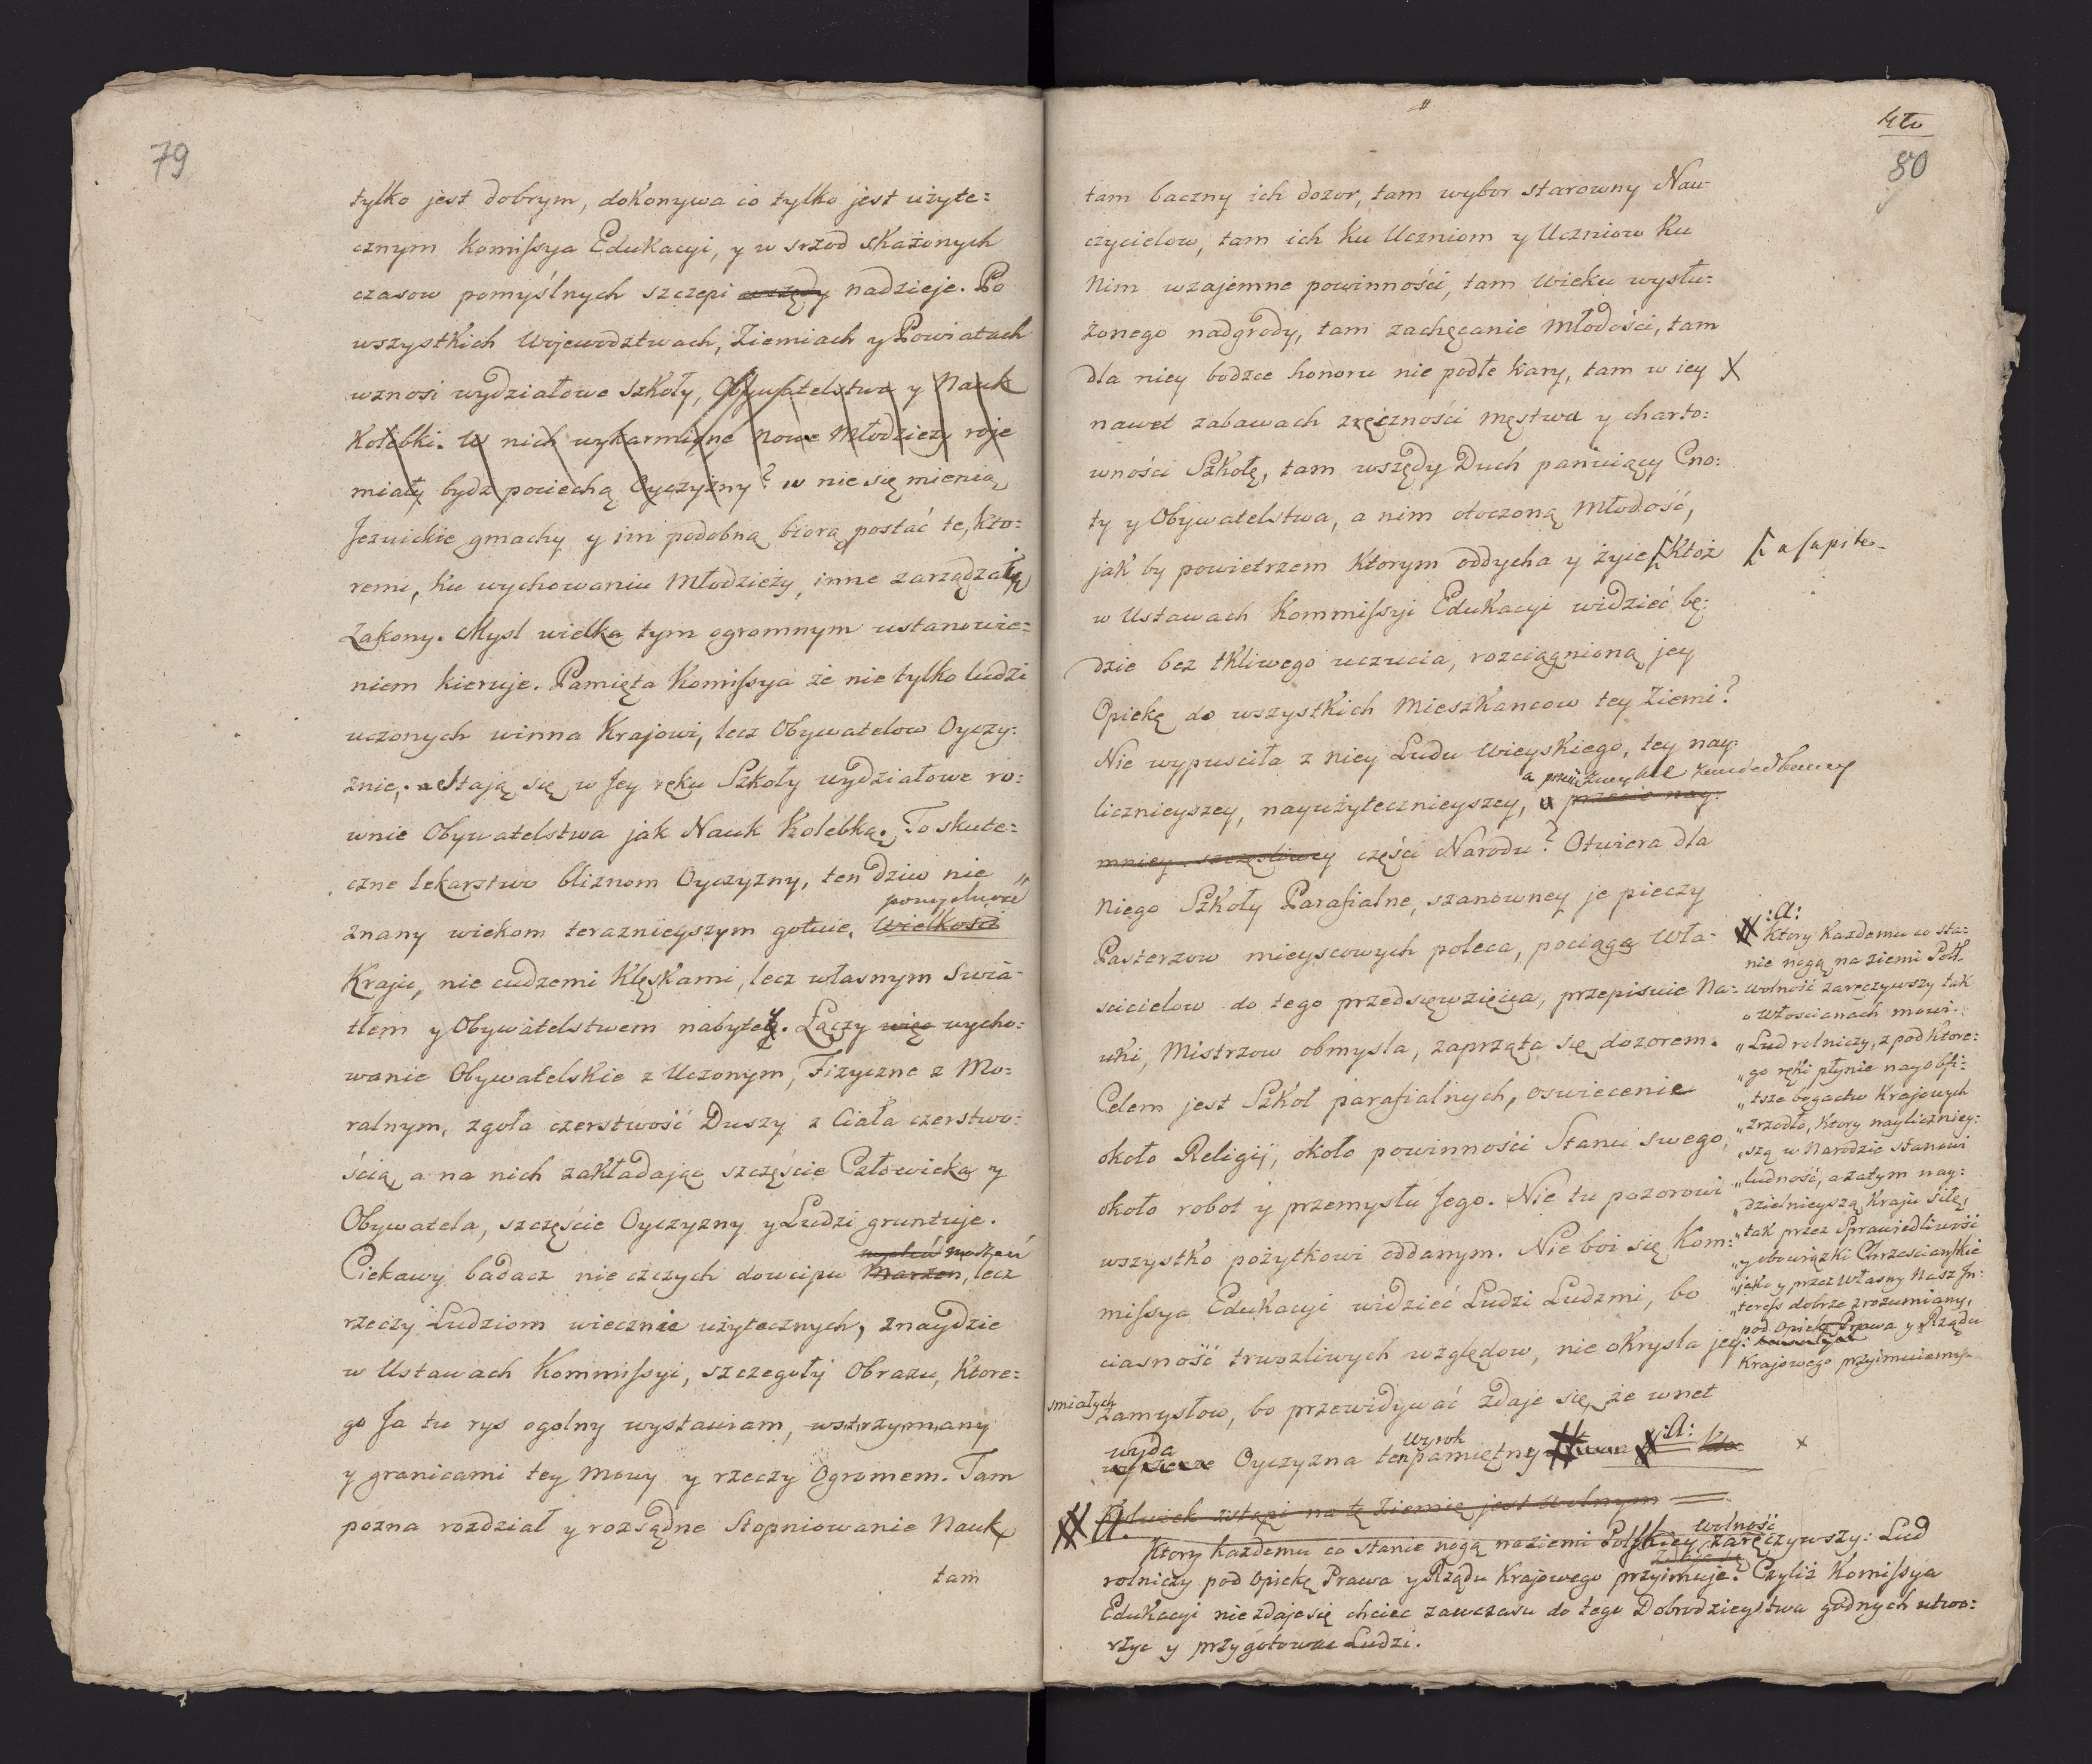 79
tylko jest dobrym, dokonywa co tylko jest użyte=
cznym Komissya Edukacyi, y w srzod skażonych
czasow pomyślnych szczepi wszędy nadzieje. Po
wszystkich Wojewodztwach, Ziemiach y Powiatach
wznosi wydziałowe Szkoły, Obywatelstwa y Nauk
Kolebki. W nich wykarmione nowe Młodzieży roje
miały bydz pociechą Oyczyzny? w nie się mienią
Jezuickie gmachy y im podobną biorą postać te, Kto=
remi, ku wychowaniu Młodzieży, inne zarządzały
Zakony. Mysl wielka tym ogromnym ustanowie=
niem kieruje. Pamięta Komissya że nie tylko ludzi
uczonych winna Krajowi, lecz Obywatelow Oyczy=
znie, Stają się w Jey ręku Szkoły wydziałowe ro=
wnie Obywatelstwa jak Nauk Kolebką. To skute=
czne lekarstwo bliznom Oyczyzny, ten dziw nie
pomyslność
znany wiekom teraznieyszym gotuie, Wielkości
Kraju, nie cudzemi Klęskami, lecz własnym Swia=
tłem y Obywatelstwem nabytey. Łączy więc wycho=
wanie Obywatelskie z Uczonym, Fizyczne z Mo=
ralnym, zgoła czerstwość Duszy z Ciała czerstwo=
ścią, a na nich zakładając szczęście Człowieka y
Obywatela, szczęście Oyczyzny y Ludzi gruntuje.
Ciekawy badacz nie czczych dowcipu Marzen, lecz
rzeczy Ludziom wiecznie użytecznych, znaydzie
w Ustawach Kommissyi, szczegoły Obrazu, Ktore=
go Ja tu rys ogolny wystawiam, wstrzymany
y granicami tey Mowy y rzeczy Ogromem. Tam
pozna rozdział y rozsądne Stopniowanie Nauk
tam
80
tam baczny ich dozor, tam wybor starowny Nau=
czycielow, tam ich ku Uczniom y Uczniow ku
Nim wzajemne powinności, tam Wieku wysłu=
żonego nadgrody, tam zachęcanie Młodości, tam
dla niey bodzce honoru nie podłe kary, tam w iey X
nawet zabawach zręczności męstwa y charto=
wności Szkołę, tam wszędy Duch panuiący Cno=
ty y Obywatelstwa, a nim otoczoną Młodość,
jak by powietrzem Ktorym oddycha y żyie Ktoż
a capite
w Ustawach Kommissyi Edukacyi widzieć bę=
dzie bez tkliwego uczucia, rozciągnioną jey
Opiekę do wszystkich Mieszkancow tey Ziemi?
Nie wypusciła z niey Ludu Wieyskiego, tey nay=
licznieyszey, nayużytecznieyszey, a przecie nay=
mniey szczęsliwey części Narodu? Otwiera dla
Niego Szkoły Parafialne, szanowney je pieczy
Pasterzow mieyscowych poleca, pociąga Wła=
scicielow do tego przedsięwzięcia, przepisuie Na=
uki, Mistrzow obmysla, zaprząta się dozorem.
Celem jest Szkoł parafialnych, oswiecenie
około Religii, około powinności Stanu swego,
około robot y przemysłu Jego. Nie tu pozorowi
wszystko pożytkowi oddanym. Nie boi się Kom=
missya Edukacyi widzieć Ludzi Ludzmi, bo
ciasność trwozliwych względow, nie okrysla jey
smiałych
Zamysłow, bo przewidywać zdaje się, że wnet
wyda Wyrok :A:
Oyczyzna ten pamiętny
Kolwiek zstąpi na tę Ziemię jest Wolnym
A.
wolność
Ktory każdemu co stanie nogą na ziemi Polskiey zaręczywszy: Lud
rolniczy pod Opiekę Prawa y Rządu Krajowego przyimuje? Czyliż Komissya
Edukacyi nie zdaje się chciec zawczasu do tego Dobrodzieystwa godnych utwo=
rzyc y przygotowac Ludzi.
:A:
Ktory Każdemu co sta=
nie nogą na ziemi Pol.
wolność zaręczywszy tak
o Włoscianach mowi.
„Lud rolniczy, z pod Ktore=
„go ręki płynie nayobfi=
„tsze bogactw Krajowych
„zrzodło, Ktory nayliczniey=
„szą w Narodzie stanowi
„ludność, a zatym nay=
„dzielnieyszą Kraju siłę,
„tak przez Sprawiedliwość
„y obowiązki Chrzescianskie
„jako y przez Własny Nasz In=
„teress dobrze zrozumiany,
pod Opiekę Prawa y Rządu
Krajowego przyimuiemy